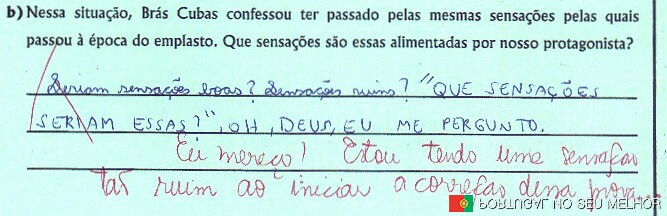 b) Nessa situação, Brás Cubas confessou ter passado pelas mesmas sensações pelas quais
passou à época do emplasto. Que sensações são essas alimentadas por nosso protagonista?
Seriam sensações boas? Sensações ruins? "QUE SENSAÇÕES
SERIAM ESSAS?", OH, DEUS, EU ME PERGUNTO.
Eu mereço! Estou tendo uma sensação
tão ruim ao iniciar a correção dessa prova...
PORTUGAL NO SEU MELHOR